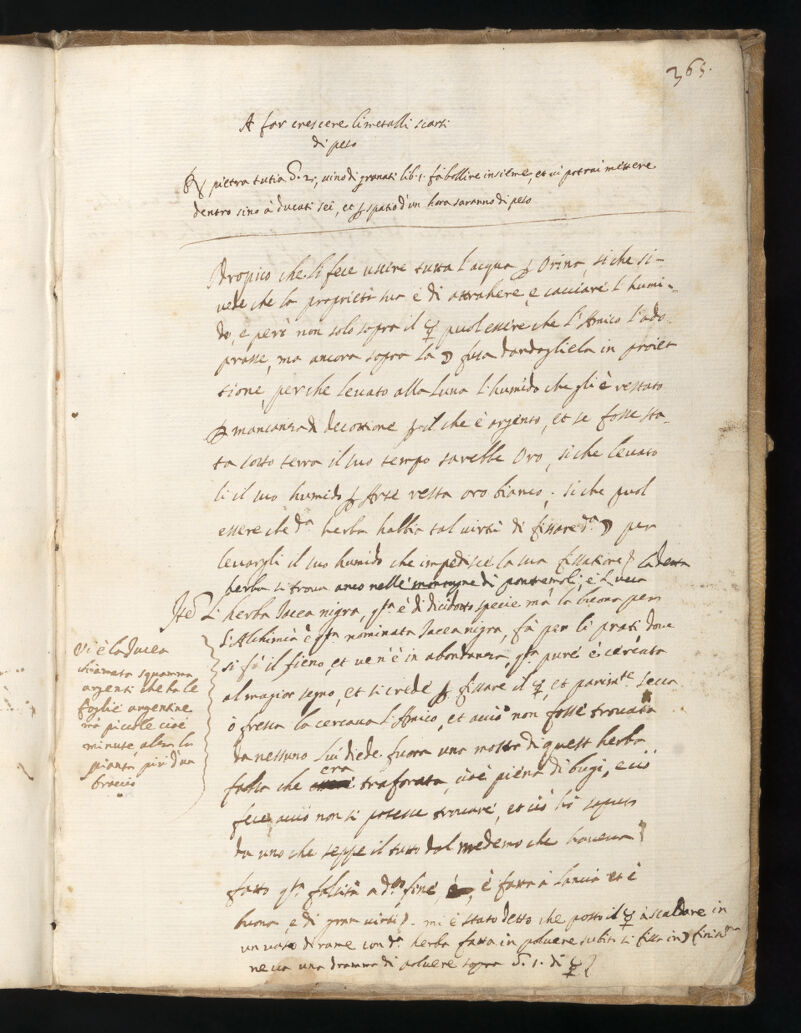 365.
A far crescere li metalli scarsi
di peso
℞ pietra tutia ℥. 2., vino di granati lib. 1. fà bollire insieme, et ui potrai mettere
dentro sino à ducati sei, et ꝑ spatio d'un hora saranno di peso
Idropico che li fece uscire tutta l'acqua ꝑ Orina, si che si
uede che la proprietà sua è di attrahere, e cacciare l'humi-
do, e però non solo sopra il ☿ puol essere che l'Amico l'ado
prasse, ma ancora sopra la ☽ fusa dandogliela in proiet
tione, perche leuato alla Luna l'humido che gli è restato
ꝑ mancanza di decottione ꝑ il che è argento, et se fosse sta-
ta sotto terra il suo tempo sarebbe Oro, si che leuato
li il suo humido ꝑ Arte resta oro bianco, si che puol
essere che dᵃ herba habbia tal uirtù di fissare dᵃ ☽ per
leuargli il suo humido che impedisce la sua fissatione la detta
herba si troua anco nelle montagne di pontremoli, e Lucca
L'herba Jacea nigra, qᵗᵃ è di specie mà la buona per
l'Alchimia è qᵗᵃ nominata Jacea nigra, fà per li prati doue
si fà il fieno, et ue n'è in abondanza, qᵗᵃ pure è cercata
al magior segno, et si crede ꝑ fissare il ☿, et parimᵗᵉ secca
ò fresca la cercaua l'Amico, et acciò non fosse trouata
da nessuno lui diede fuora una mostra di quest herba
falsa che era traforata, cioè piena di bugi, e ciò
fece acciò non si potesse trouare, et ciò hò saputo
da uno che seppe il tutto dal medemo che haueua
fatto qᵗᵃ falsità a dᵗᵒ fine, è fatta à lancia et è
buona, e di gran uirtù. mi è stato detto che posto il ☿ à scaldare in
un uaso di rame con dᵃ herba fatta in poluere subito si fissa in ☽
ne ua una dramma di poluere sopra ℥. 1. di ☿
Vi è la Jacea
chiamata squamma
argenti che ha le
foglie argentine
mà piccole cioè
minute, alza la
pianta più d'un
braccio